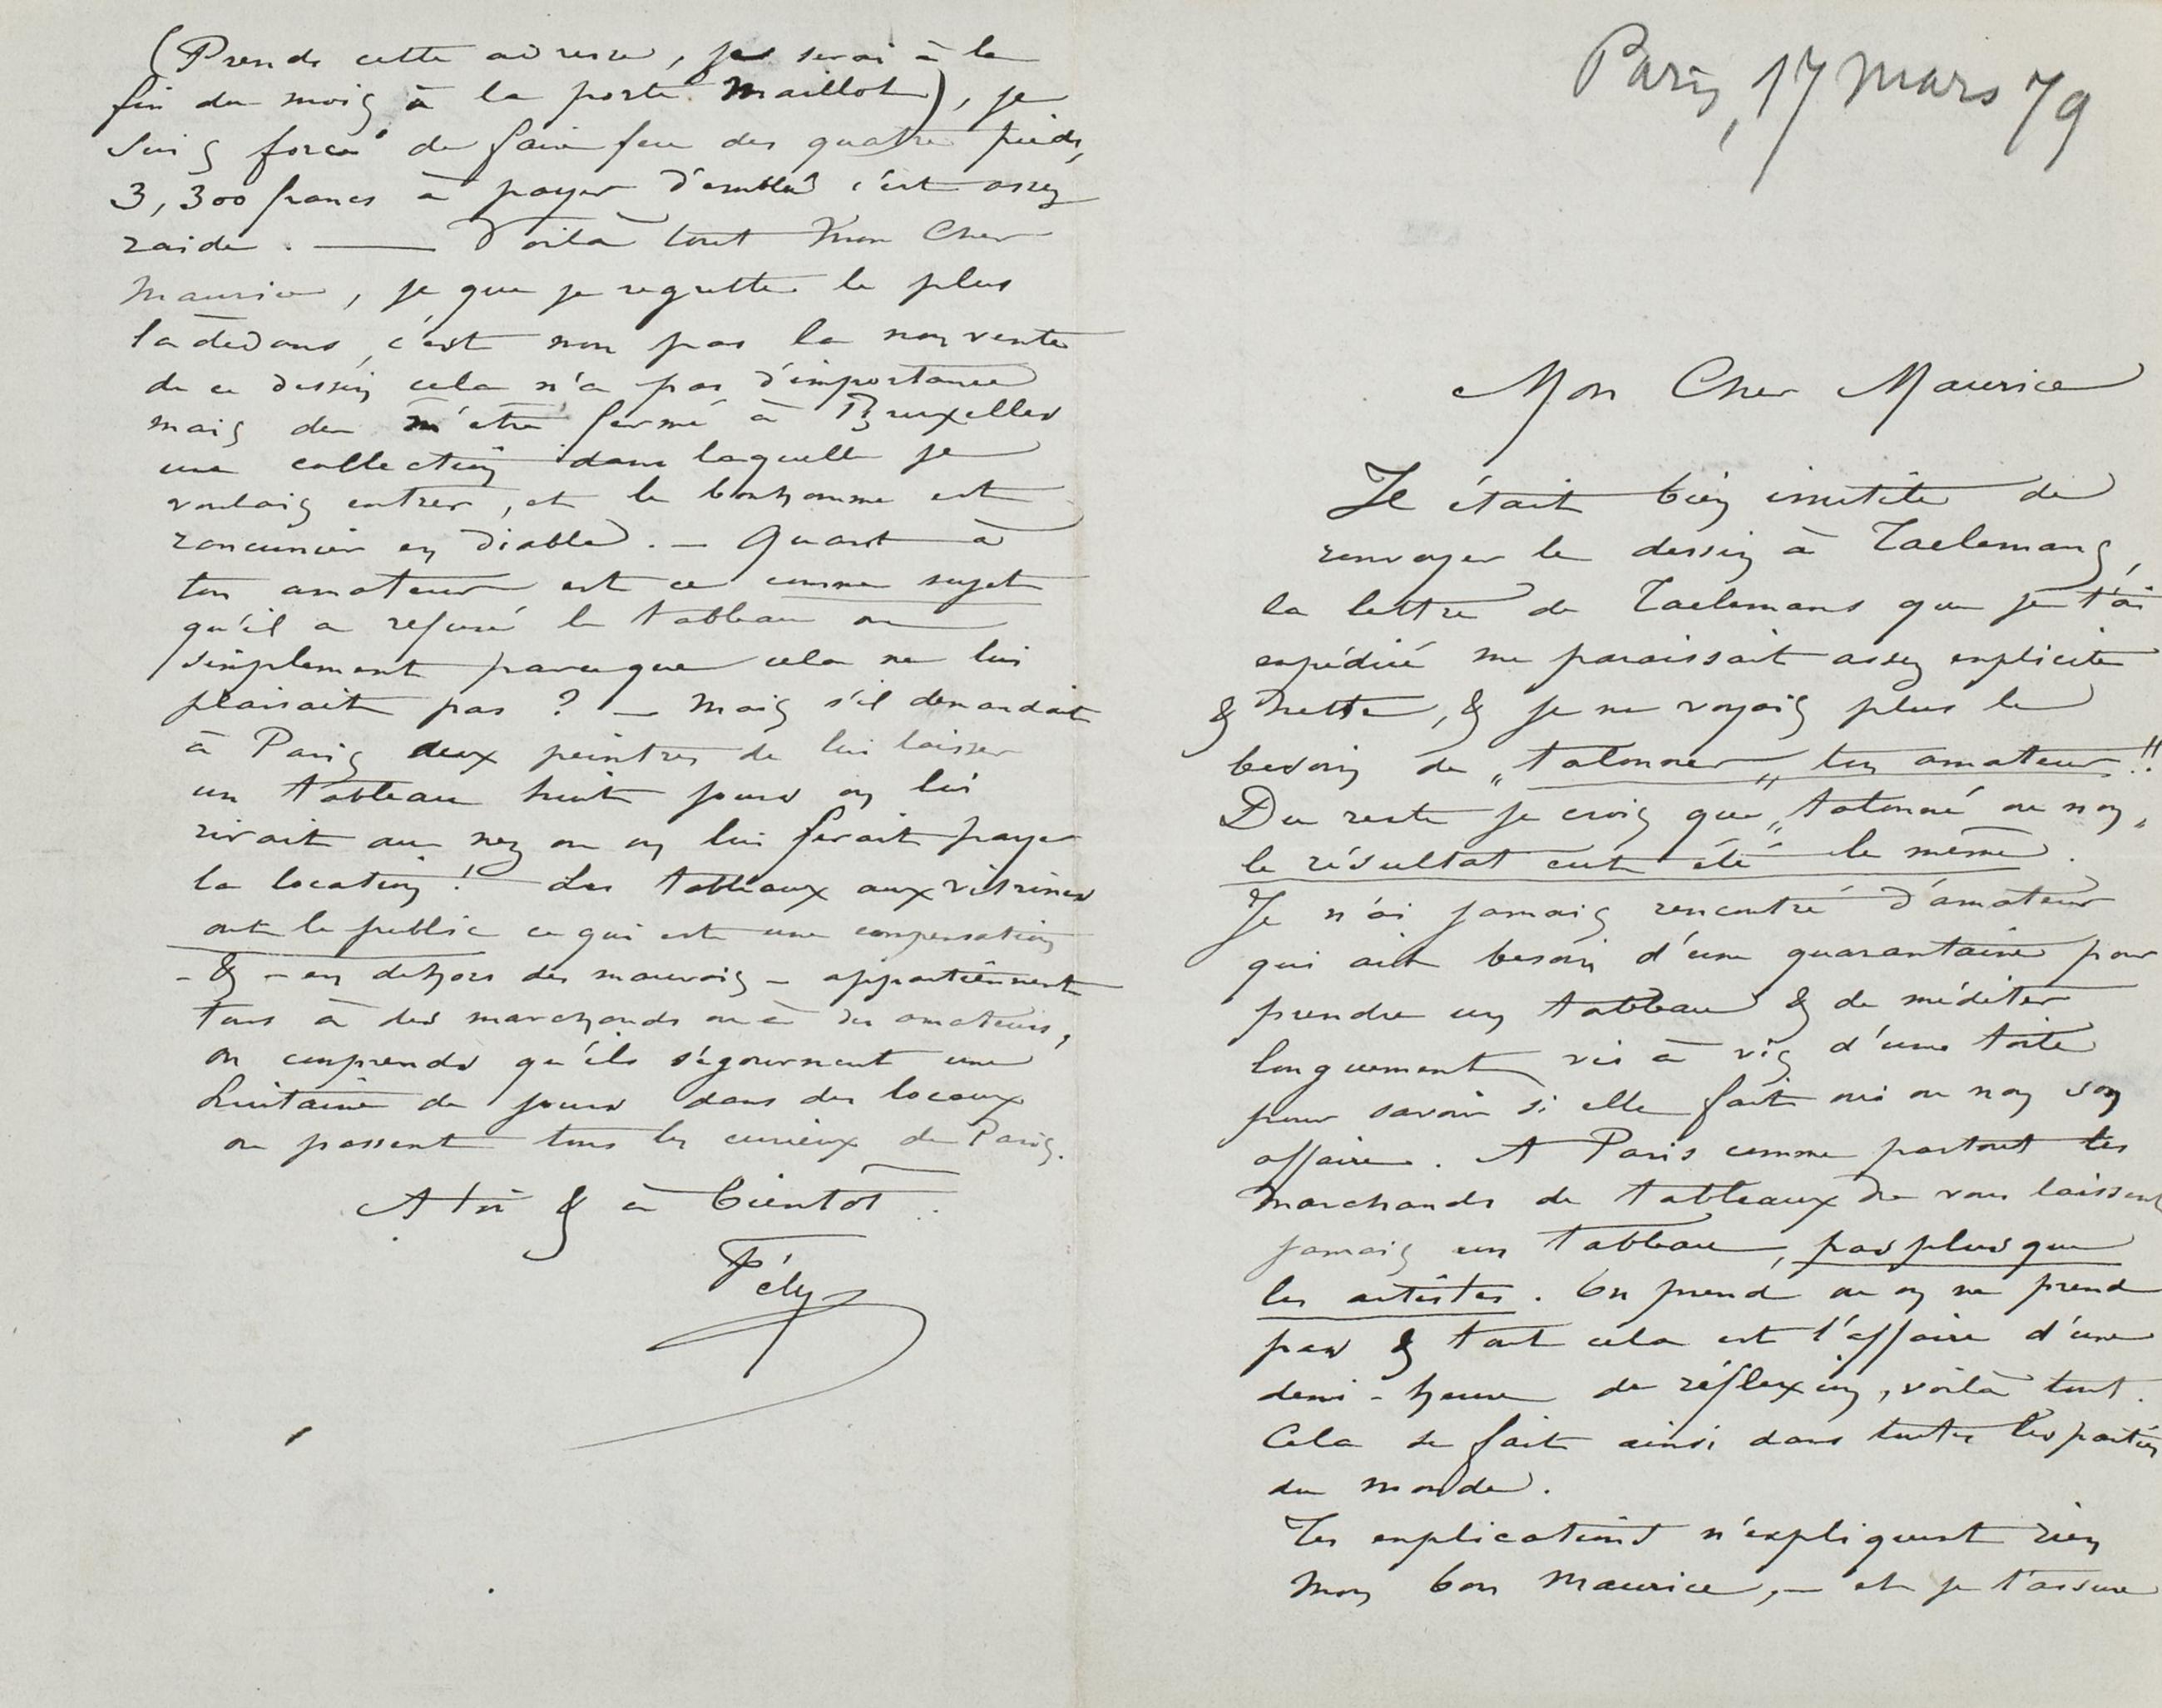 Paris, 17 mars 79
Mon Cher Maurice
Il était bien inutile de
renvoyer le dessin à Taelemans,
la lettre de Taelemans que je t'ai
expédiée me paraissait assez explicite
& nette, & je ne voyais plus le
besoin de „talonner„ ton amateur!!
Du reste je crois que „talonné ou non„
le résultat eut été le même.
Je n'ai jamais rencontré d'amateur
qui ait besoin d'une quarantaine pour
prendre un tableau & de méditer
longuement vis à vis d'une toile
pour savoir si elle fait oui ou non son
affaire. A Paris comme partout les
marchands de tableaux ne vous laissent
jamais un tableau, pas plus que
les artistes. On prend ou on ne prend
pas & tout cela est l'affaire d'une
demi-heure de réflexion, voilà tout.
Cela se fait ainsi dans toutes les parties
du monde.
Tes explications n'expliquent rien
mon bon Maurice, — et je t'assure
(Prends cette adresse, je serai à la
fin du mois à la porte Maillot), je
suis forcé de faire feu des quatre pieds,
3,300 francs à payer d'emblée c'est assez
raide. — Voilà tout mon Cher
Maurice, je que je regrette le plus
là dedans, c'est non pas la non vente
de ce dessin cela n'a pas d'importance
mais de m'être fermé à Bruxelles
une collection dans laquelle je
voulais entrer, et le bonhomme est
rancunier en diable. — Quant à
ton amateur est ce comme sujet
qu'il a refusé le tableau ou
simplement parceque cela ne lui
plaisait pas ? — Mais s'il demandait
à Paris deux peintres de lui laisser
un tableau huit jours on lui
rirait au nez ou on lui ferait payer
la location ! Les tableaux aux vitrines
ont le public ce qui est une compensation
- & - en dehors des mauvais - appartiennent
tous à des marchands ou à des amateurs,
on comprends qu'ils séjournent une
huitaine de jours dans des locaux
ou passent tous les curieux de Paris.
A toi & à bientôt.
Fély